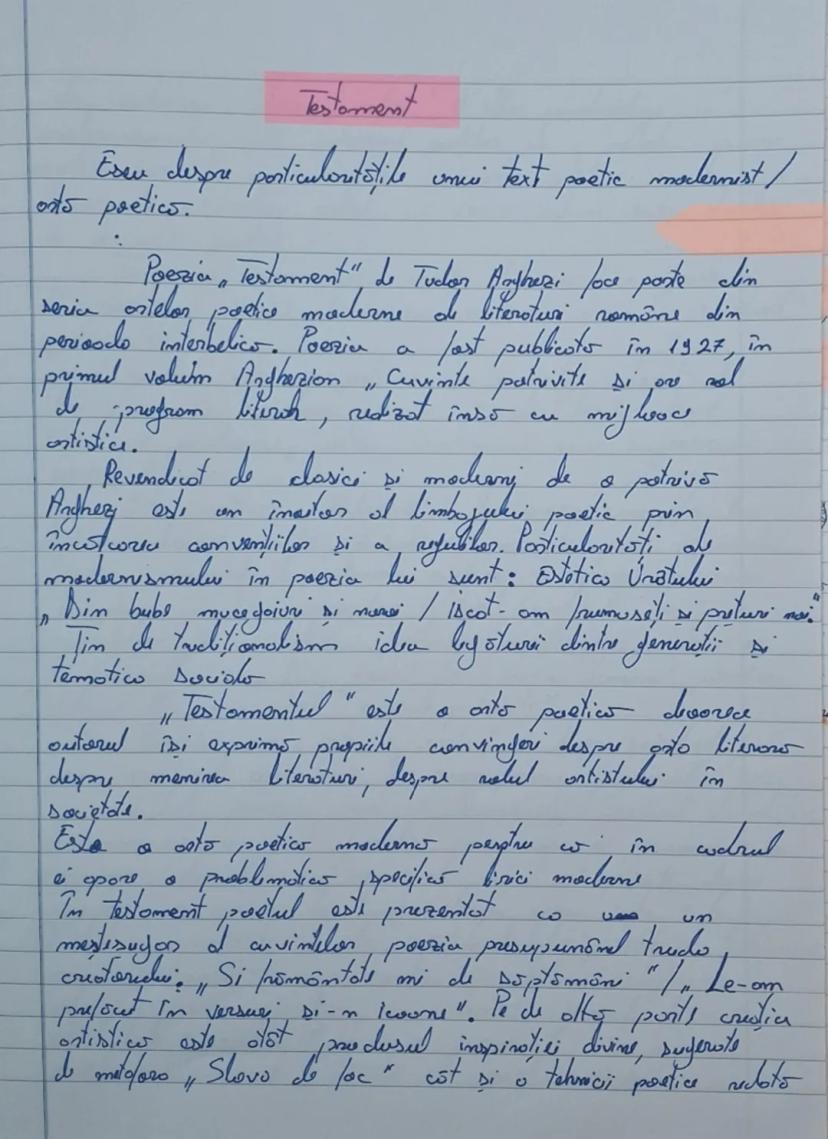 Testament
Eseu despre particularitățile unui text poetic modernist/
artă poetică.
Poezia „Testament" de Tudor Arghezi face parte din
seria artelor poetice moderne al literaturi române din
perioada interbelică. Poezia a fost publicată în 1927, în
primul volum Arghezian „Cuvinte potrivite și are rol
de program literar, realizat însă cu mijloace
artistice.
Revendicat de clasici și moderni de o potrivă
Arghezi este un înaitas al limbajului poetic prin
încălcarea convențiilor și a regulilor. Particularități ale
modernismului în poezia lui sunt: Estetica Urâtului
„Din bube mucegaiuri și noroi / Iscat-am frumuseți și prețuri noi."
Țin de tradiționalism idea legăturii dintre generații și
tematica socială
„Testamentul" este o artă poetică deoarece
autorul își exprimă propriile convingeri despre arta literară
despre menirea literaturi, despre rolul artistului în
societate.
Este o artă poetică modernă pentru că în cadrul
ei apare o problematică specifică liricii moderne
În testament poetul este prezentat ca un
meșteșugar al cuvintelor poezia presupunând truda
creatorului. „Si frământate mi de săptămâni "/„ Le-am
prefăcut în versuri și-n icoane". Pe de altă parte creația
artistică este atât produsul inspirației divine, sugerate
de metafora „Slova de foc" cât și o tehnicii poetice redată